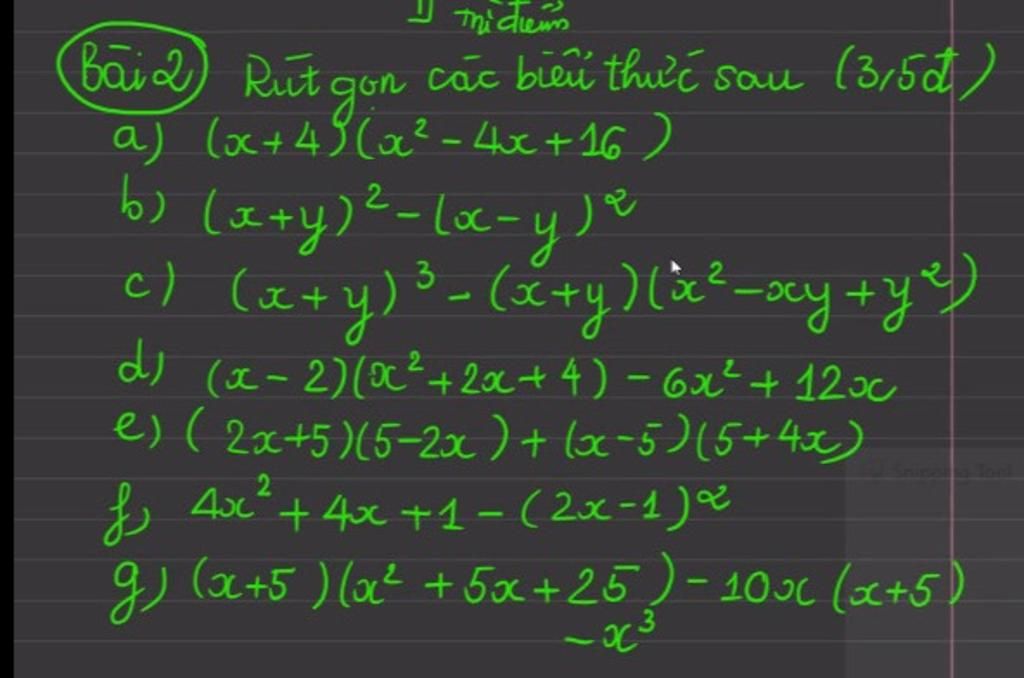 Bài 2 Rút gọn các biểu thức sau (3,5đ)
a) (x+4)(x² - 4x + 16)
b) (x+y)² - (x-y)²
c) (x+y)³ - (x+y)(x² - xy + y²)
d) (x-2)(x² + 2x + 4) - 6x² + 12x
e) (2x+5)(5-2x) + (x-5)(5+4x)
f) 4x² + 4x + 1 - (2x-1)²
g) (x+5)(x² + 5x + 25) - 10x(x+5)
- x³
Snipping Tool